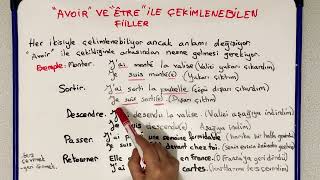 "AVOIR" VE "ÊTRE" İLE ÇEKİMLENEBİLEN
FİİLLER
Her ikisiyle çekimlenebiliyor ancak anlamı değişiyor.
"Avoir" ile çekildiğinde arkasından nesne gelmesi gerekiyor.
Exemple: Monter. J'ai monté la valise (Valizi yukarı çıkardım)
Je suis monté(e) (Yukarı çıktım)
Sortir. J'ai sorti la poubelle (Çöpü dışarı çıkardım)
Je suis sorti(e) (Dışarı çıktım)
Descendre. descendu la valise (Valizi aşağıya indirdim)
(Aşağıya indim)
Passer. une semaine formidable
devant chez toi.
Retourner. Elle en France
cartes.